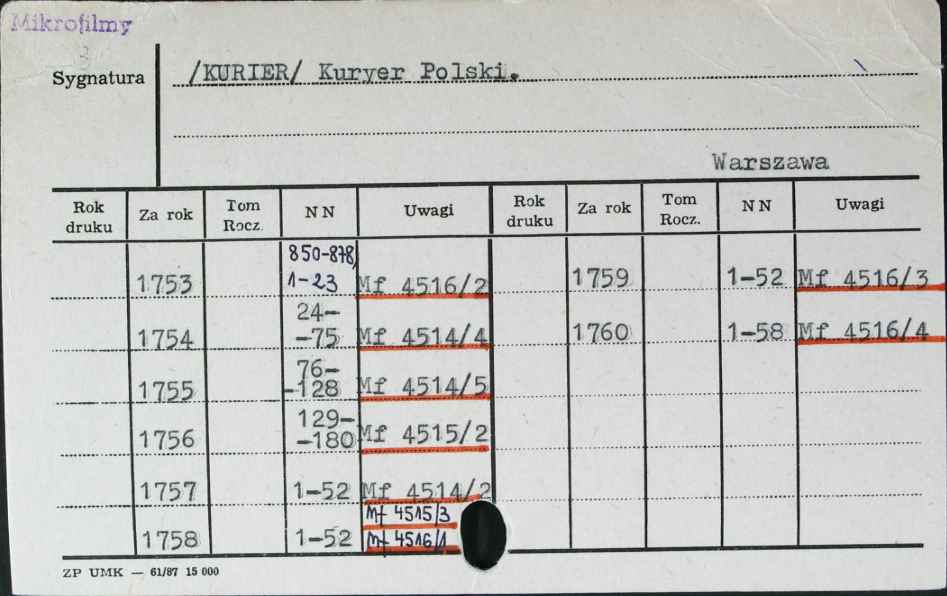 Mikrofilmy
Sygnatura /KURIER/ Kuryer Polski.
Warszawa
Rok druku Za rok Tom Rocz. NN Uwagi Rok druku Za rok Tom Rocz. NN Uwagi
1753 850-878, 1-23 Mf 4516/2 1759 1-52 Mf 4516/3
1754 24--75 Mf 4514/4 1760 1-58 Mf 4516/4
1755 76--128 Mf 4514/5
1756 129--180 Mf 4515/2
1757 1-52 Mf 4514/2
Mf 4515/3
1758 1-52 Mf 4516/1
ZP UMK — 61/87 15 000